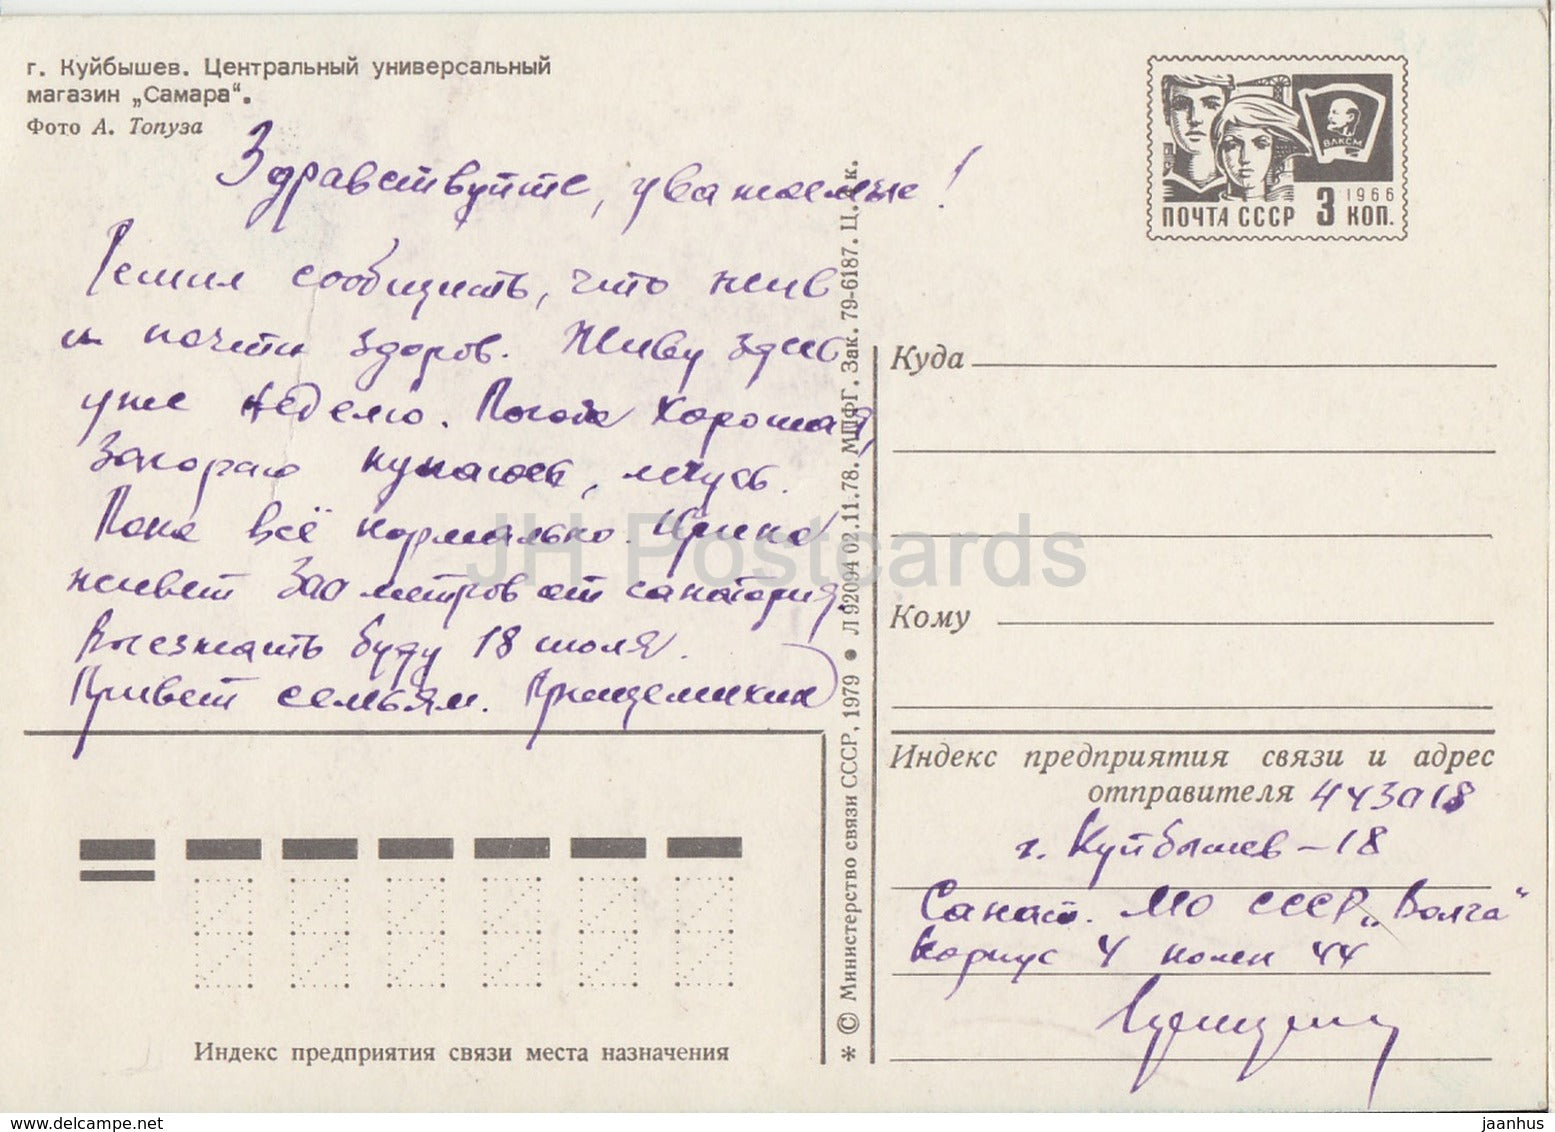 г. Куйбышев. Центральный универсальный
магазин „Самара".
Фото А. Топуза
Здравствуйте, уважаемые!
Решил сообщить, что жив
и почти здоров. Живу здесь
уже неделю. Погода хорошая,
Загораю купаюсь, лечусь.
Пока всё нормально. Ирина
живет 300 метров от санатория.
Выезжать буду 18 июля.
Привет семьям.
ВЛКСМ
1966
ПОЧТА СССР 3 КОП.
* © Министерство связи СССР, 1979 ● Л 92094 02.11.78. МПФГ. Зак. 79-6187. Ц. 4 к.
Куда
Кому
Индекс предприятия связи и адрес
отправителя 443018
г. Куйбышев-18
Санат. МО СССР „Волга"
Корпус 4 комн 44
Индекс предприятия связи места назначения
JH Postcards
www.delcampe.net
jaanhus